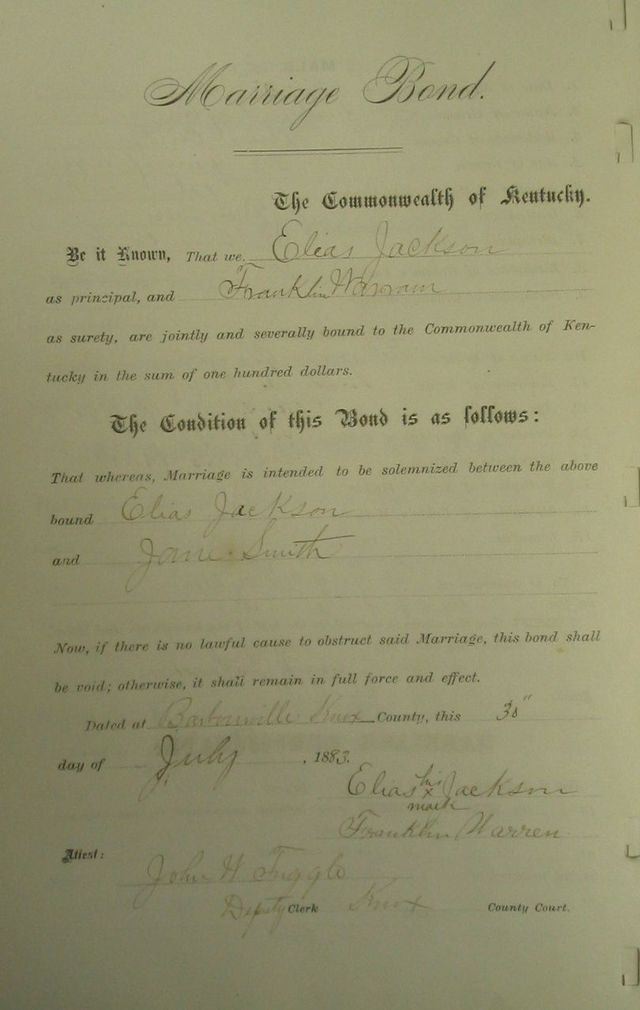 Marriage Bond.
The Commonwealth of Kentucky.
Be it Known, That we, Elias Jackson
as principal, and Franklin Warram
as surety, are jointly and severally bound to the Commonwealth of Ken-
tucky in the sum of one hundred dollars.
The Condition of this Bond is as follows:
That whereas, Marriage is intended to be solemnized between the above
bound Elias Jackson
and Jane Smith
Now, if there is no lawful cause to obstruct said Marriage, this bond shall
be void; otherwise, it shall remain in full force and effect.
Dated at Barbourville Knox County, this 30"
day of July, 1883.
Elias his x mark Jackson
Franklin Warren
Attest:
John W. Tuggle
Deputy Clerk Knox County Court.